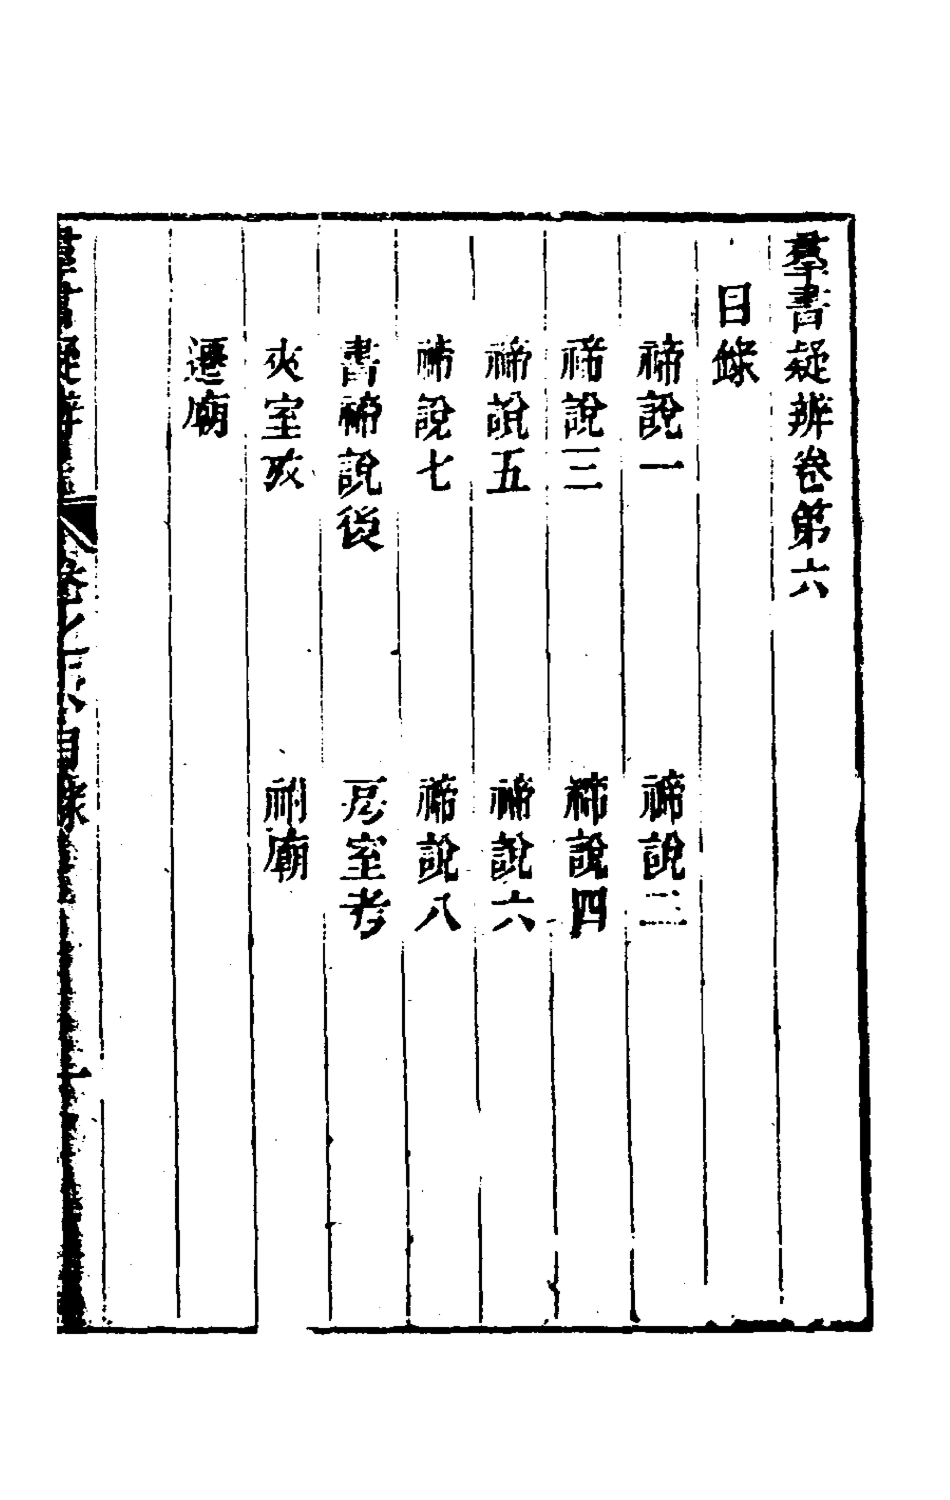 羣書疑辨卷第六
目錄
禘說一　禘說二
禘說三　禘說四
禘說五　禘說六
禘說七　禘說八
書禘說後　房室考
夾室攷　祔廟
遷廟
羣書疑辨　卷之六目錄　一